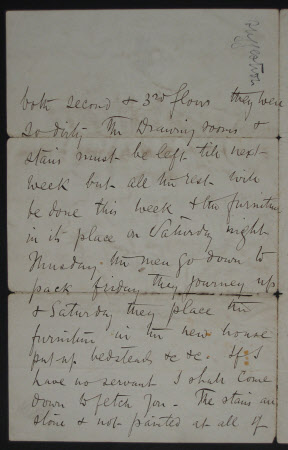 both second & 3rd floors they were
so dirty The Drawing rooms &
stairs must be left till next
week but all the rest will
be done this week & the furniture
in its place on Saturday night
Thursday. The men go down to
pack Friday they journey up
& Saturday they place the
furniture in the new house
put up bedsteads &c &c. If I
have no servant I shall come
down to fetch you. The stairs are
stone & not painted at all if